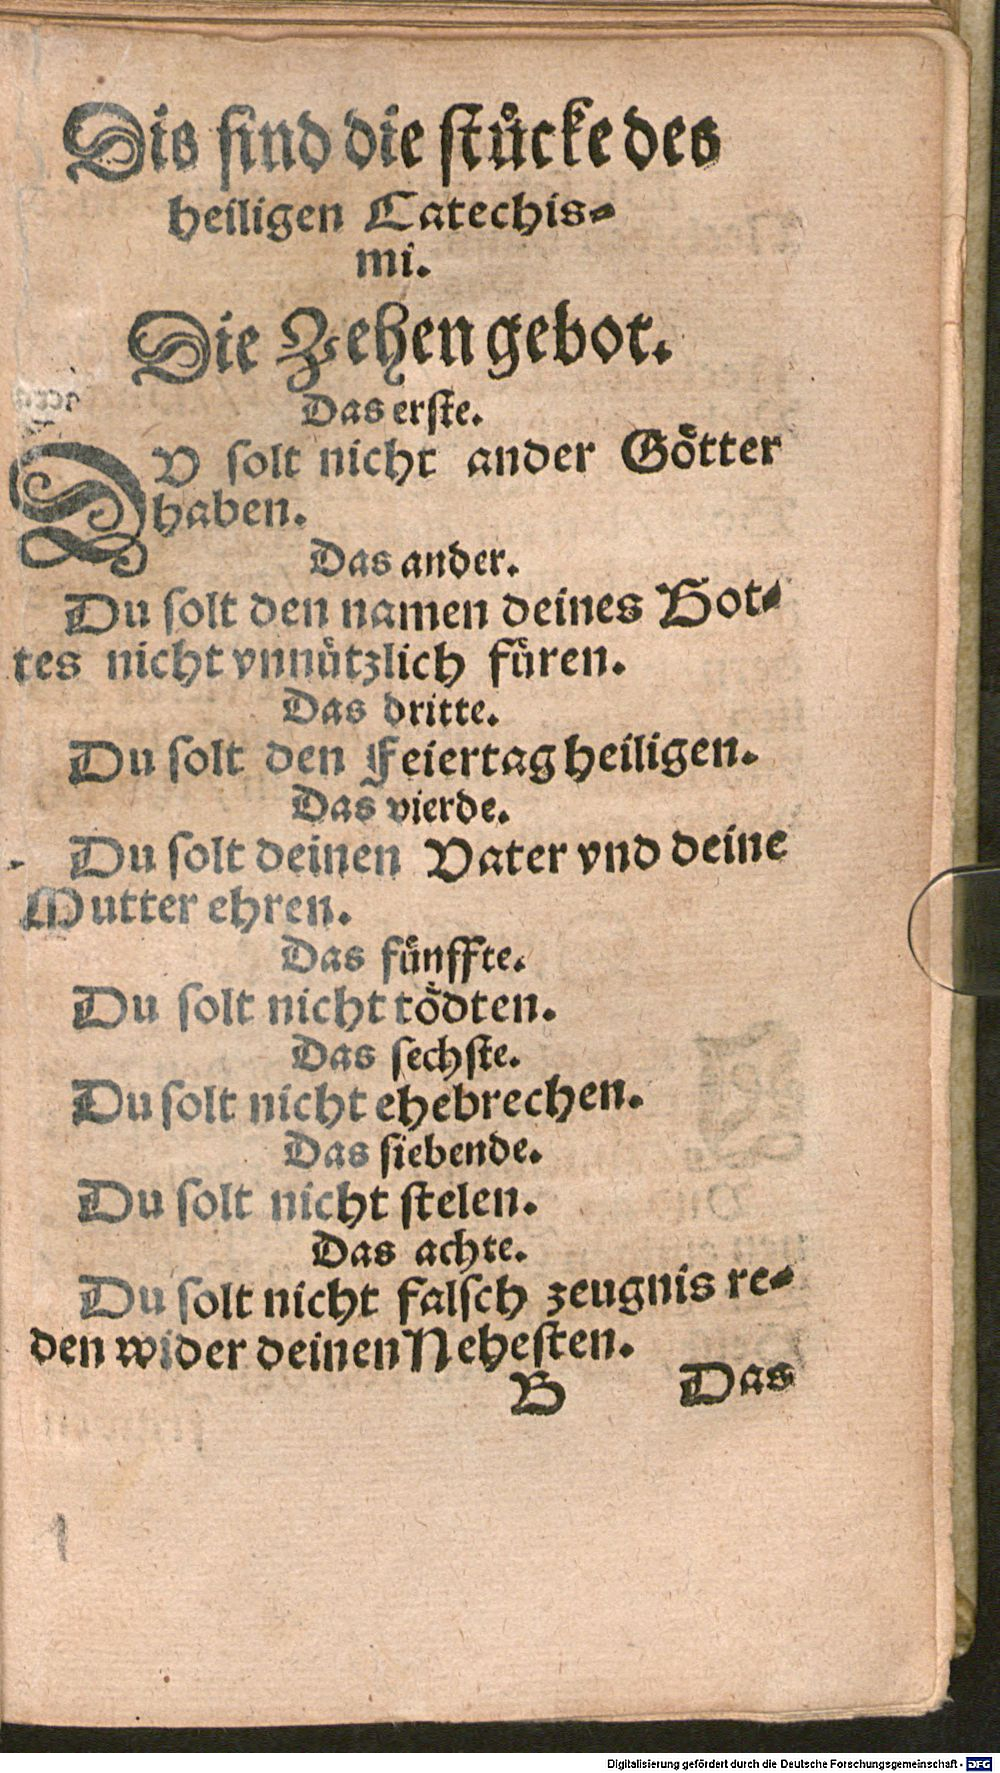 Dis sind die stuͤcke des
heiligen Catechis-
mi.
Die Zehen gebot.
Das erste.
DV solt nicht ander Goͤtter
haben.
Das ander.
Du solt den namen deines Got-
tes nicht vnnuͤtzlich fuͤren.
Das dritte.
Du solt den Feiertag heiligen.
Das vierde.
Du solt deinen Vater vnd deine
Mutter ehren.
Das fuͤnffte.
Du solt nicht toͤdten.
Das sechste.
Du solt nicht ehebrechen.
Das siebende.
Du solt nicht stelen.
Das achte.
Du solt nicht falsch zeugnis re-
den wider deinen Nehesten.
B Das
1
Digitalisierung gefördert durch die Deutsche Forschungsgemeinschaft - DFG